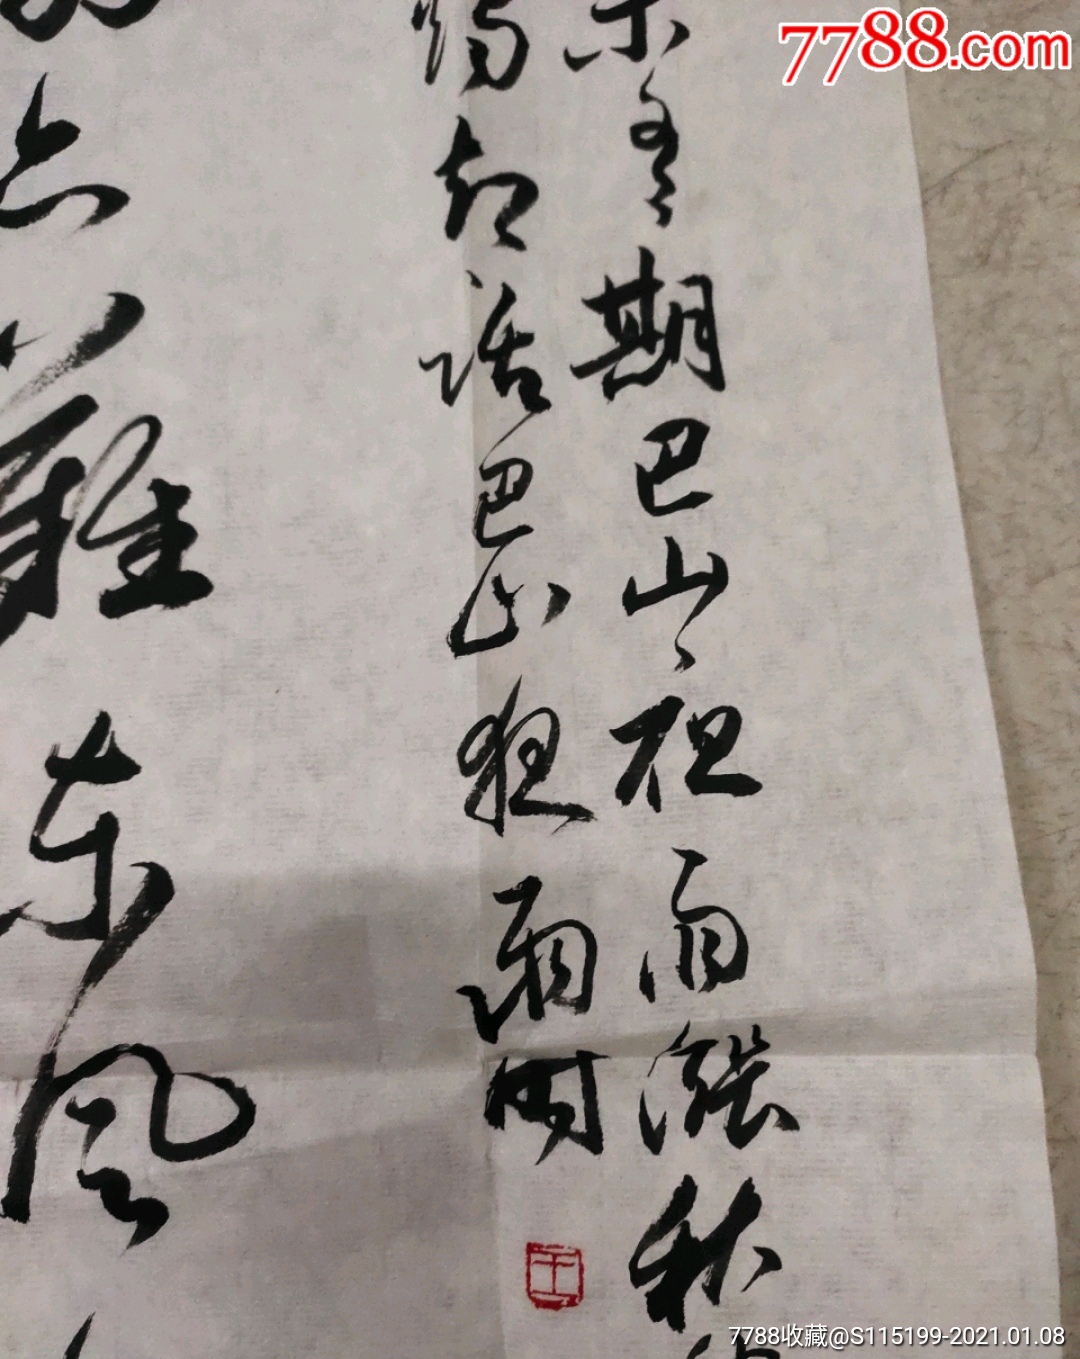 7788.com
未有期巴山夜雨漲秋
燭却話巴山夜雨時
亦難東風
7788收藏@S115199-2021.01.08